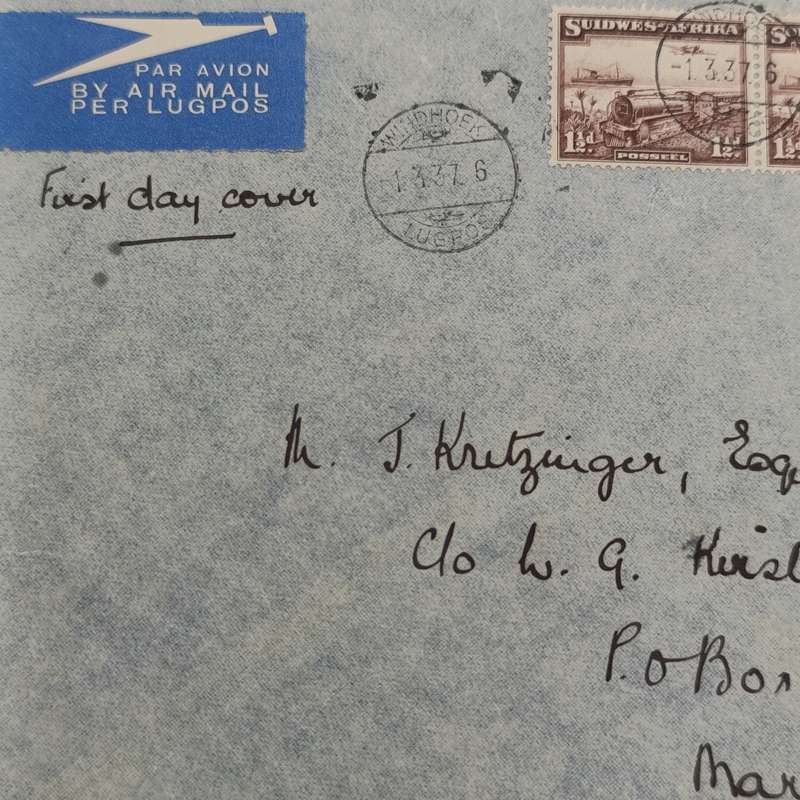 PAR AVION
BY AIR MAIL
PER LUGPOS
First day cover
WINDHOEK
-1.3.37. 6
LUGPOS
SUIDWES-AFRIKA
1½d
POSSEEL
1½d
WINDHOEK
-1.3.37. 6
M. J. Kretzinger, Esq
C/o W. G.
P.O Box
Mar